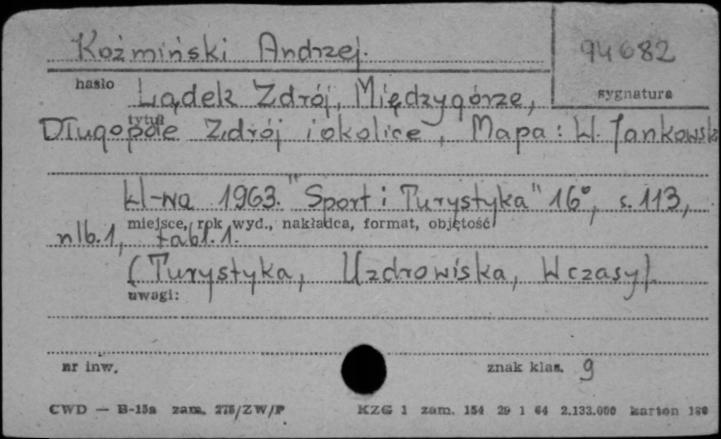 Koźmiński Andrzej.
94682
hasło
sygnatura
Lądek Zdrój, Międzygórze,
tytuł
Długopole Zdrój i okolice, Mapa: W. Jankowski
W-wa 1963. "Sport i Turystyka" 16°, s. 113,
miejsce, rok wyd., nakładca, format, objętość
nlb. 1, tabl. 1.
(Turystyka, Uzdrowiska, Wczasy).
uwagi:
nr inw.
znak klas. 9
CWD — B-15a zam. 275/ZW/P KZG 1 zam. 154 29 1 64 2.133.000 karton 180